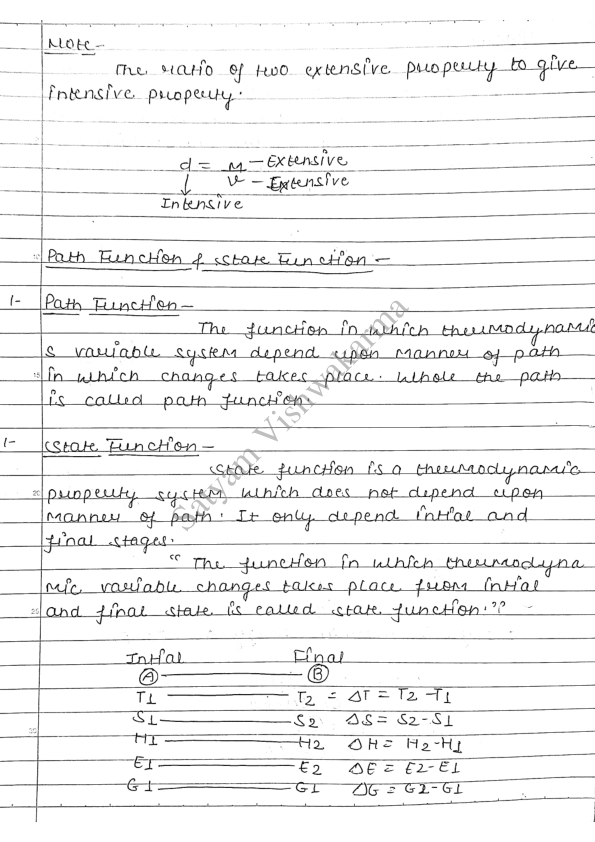 Note-
The ratio of two extensive property to give
intensive property.
d = M - Extensive
V - Extensive
Intensive
Path Function & State Function -
1- Path Function -
The function in which thermodynamic
s variable system depend upon manner of path
in which changes takes place. Whole the path
is called path function.
1- State Function -
State function is a thermodynamic
property system which does not depend upon
manner of path. It only depend intial and
final stages.
" The function in which thermodyna
mic variable changes takes place from intial
and final state is called state function."
Intial Final
A B
T1 T2 = ΔT = T2 - T1
S1 S2 ΔS = S2 - S1
H1 H2 ΔH = H2 - H1
E1 E2 ΔE = E2 - E1
G1 G1 ΔG = G2 - G1
Satyam Vishwakarma